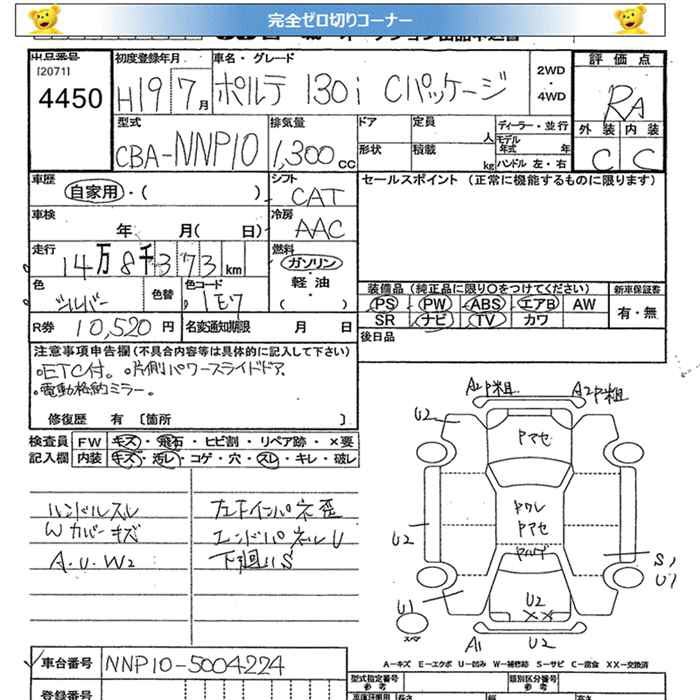 完全ゼロ切りコーナー
出品番号
[2071]
4450
初度登録年月
H19 7月
車名・グレード
ポルテ 130i Cパッケージ
2WD
・
4WD
評価点
RA
外装 内装
C C
型式
CBA-NNP10
排気量
1,300cc
ドア
定員
人
形状
積載
kg
ディーラー・並行
モデル年式 年
ハンドル 左・右
車歴
自家用・( )
シフト
CAT
セールスポイント (正常に機能するものに限ります)
車検
年 月( 日)
冷房
AAC
走行
14万8千373km
燃料
ガソリン
・
軽油
( )
色
シルバー
色替
色コード
1E7
R券 10,520円
名変通知期限 月 日
装備品 (純正品に限り○をつけてください)
PS PW ABS エアB AW
SR ナビ TV カワ
新車保証書
有・無
後日品
注意事項申告欄(不具合内容等は具体的に記入して下さい)
。ETC付。。片側パワースライドドア
。電動格納ミラー。
修復歴 有 〔箇所 〕
検査員記入欄
FW キズ・飛石・ヒビ割・リペア跡・×要
内装 キズ・汚レ・コゲ・穴・スレ・キレ・破レ
ハンドルスレ
Wカバーキズ
A.U.W2
エンドパネルU
下廻りS
A2P粗
A2P2粗
U2
Pアセ
U2
Pワレ
Pアセ
S1
U1
U1
スペア
U2
××
A1
U2
A−キズ E−エクボ U−凹み W−補修跡 S−サビ C−腐食 XX−交換済
車台番号 NNP10-5004224
登録番号
型式指定番号
参考
類別区分番号
参考